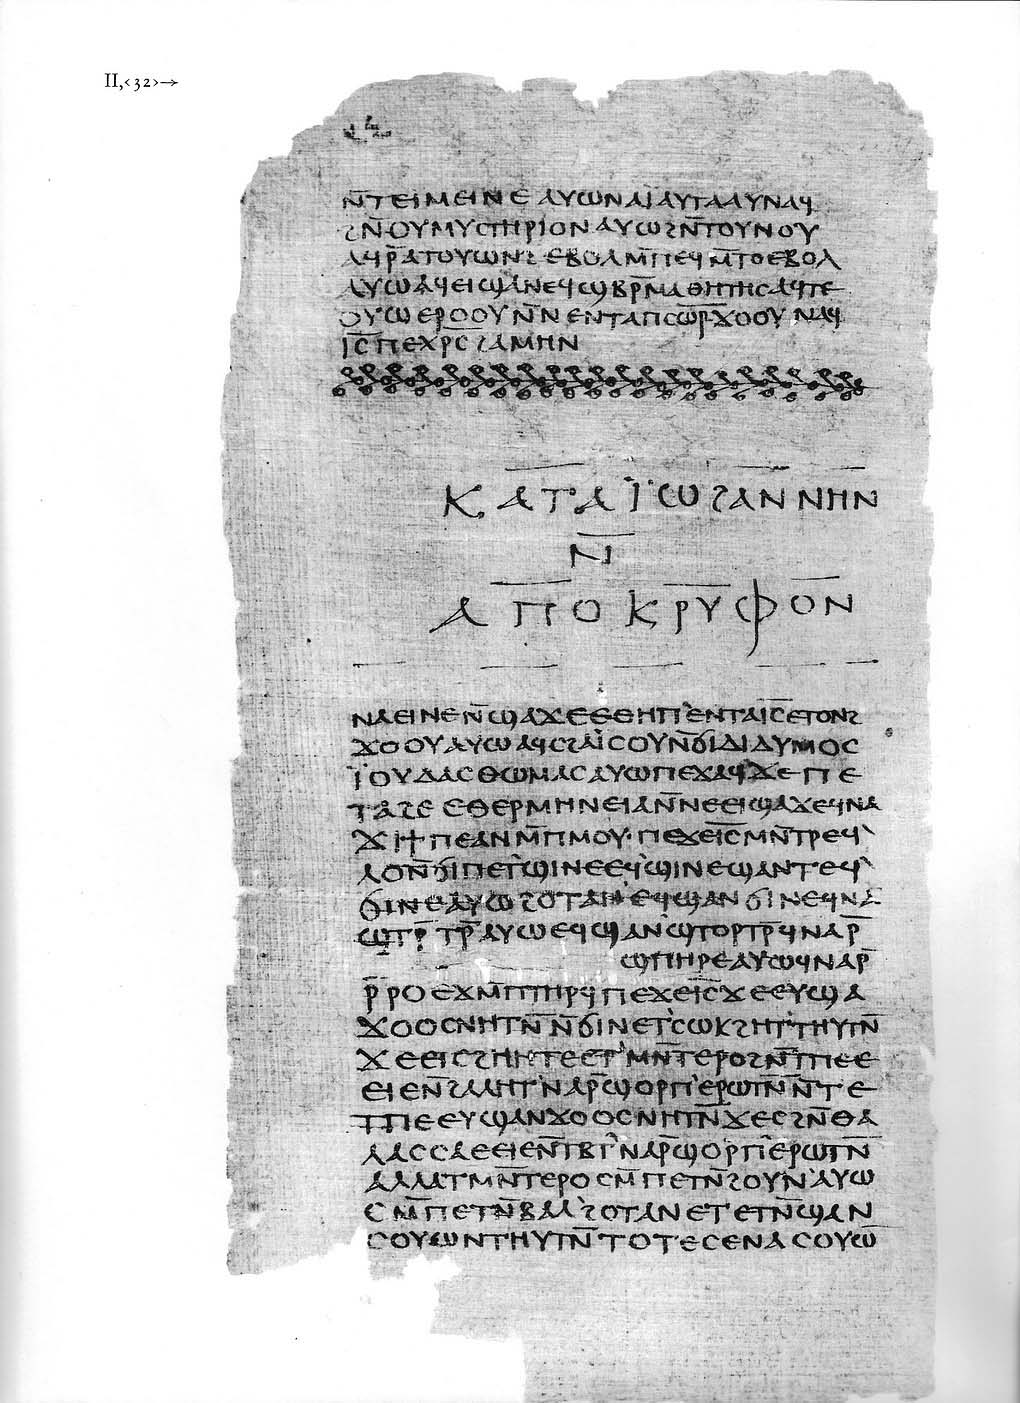 II,‹32›→
ⲛ̄ⲧⲉⲓⲙⲉⲓⲛⲉ ⲁⲩⲱ ⲛⲁⲓ̈ ⲁⲩⲧⲁⲁⲩ ⲛⲁϥ
ϩⲛ̄ ⲟⲩⲙⲩⲥⲧⲏⲣⲓⲟⲛ ⲁⲩⲱ ϩⲛ̄ ⲧⲟⲩⲛⲟⲩ
ⲁϥⲣ̄ⲁⲧⲟⲩⲱⲛϩ ⲉⲃⲟⲗ ⲙ̄ⲡⲉϥⲙ̄ⲧⲟ ⲉⲃⲟⲗ
ⲁⲩⲱ ⲁϥⲉⲓ ϣⲁ ⲛⲉϥϣⲃⲣ̄ⲙⲁⲑⲏⲧⲏⲥ ⲁϥⲧⲉ
ⲟⲩⲱ ⲉⲣⲟⲟⲩ ⲛ̄ⲛⲉⲛⲧⲁ ⲡⲥⲱⲣ̄ ϫⲟⲟⲩ ⲛⲁϥ
ⲓ̄ⲥ̄ ⲡⲉⲭⲣ̄ⲥ̄ ϩⲁⲙⲏⲛ
ⲕⲁⲧⲁ ⲓ̈ⲱϩⲁⲛⲛⲏⲛ
ⲛ̄
ⲁⲡⲟⲕⲣⲩⲫⲟⲛ
ⲛⲁⲉⲓ ⲛⲉ ⲛ̄ϣⲁϫⲉ ⲉⲑⲏⲡ' ⲉⲛⲧⲁ ⲓ̄ⲥ̄ ⲉⲧⲟⲛϩ
ϫⲟⲟⲩ ⲁⲩⲱ ⲁϥⲥϩⲁⲓ̈ⲥⲟⲩ ⲛ̄ϭⲓ ⲇⲓⲇⲩⲙⲟⲥ
ⲓ̈ⲟⲩⲇⲁⲥ ⲑⲱⲙⲁⲥ ⲁⲩⲱ ⲡⲉϫⲁϥ ϫⲉ ⲡⲉ
ⲧⲁϩⲉ ⲉⲑⲉⲣⲙⲏⲛⲉⲓⲁ ⲛ̄ⲛⲉⲉⲓϣⲁϫⲉ ϥⲛⲁ
ϫⲓ ϯⲡⲉ ⲁⲛ ⲙ̄ⲡⲙⲟⲩ· ⲡⲉϫⲉ ⲓ̄ⲥ̄ ⲙⲛ̄ⲧⲣⲉϥ'
ⲗⲟ ⲛ̄ϭⲓ ⲡⲉⲧ'ϣⲓⲛⲉ ⲉϥ'ϣⲓⲛⲉ ϣⲁⲛⲧⲉϥ'
ϭⲓⲛⲉ ⲁⲩⲱ ϩⲟⲧⲁⲛ' ⲉϥϣⲁⲛϭⲓⲛⲉ ϥⲛⲁ
ϣⲧⲣ̄ⲧⲣ̄ ⲁⲩⲱ ⲉϥϣⲁⲛϣⲧⲟⲣⲧⲣ̄ ϥⲛⲁⲣ̄
ϣⲡⲏⲣⲉ ⲁⲩⲱ ϥⲛⲁⲣ̄
ⲣ̄ⲣⲟ ⲉϫⲙ̄ ⲡⲧⲏⲣϥ ⲡⲉϫⲉ ⲓ̄ⲥ̄ ϫⲉ ⲉⲩϣⲁ
ϫⲟⲟⲥ ⲛⲏⲧⲛ̄ ⲛ̄ϭⲓ ⲛⲉⲧ'ⲥⲱⲕ ϩⲏⲧ' ⲧⲏⲩⲧⲛ̄
ϫⲉ ⲉⲓⲥϩⲏⲏⲧⲉ ⲉⲧ'ⲙⲛ̄ⲧⲉⲣⲟ ϩⲛ̄ ⲧⲡⲉ ⲉ
ⲉⲓⲉ ⲛ̄ϩⲁⲗⲏⲧ' ⲛⲁⲣ̄ ϣⲟⲣⲡ' ⲉⲣⲱⲧⲛ̄ ⲛ̄ⲧⲉ
ⲧⲡⲉ ⲉⲩϣⲁⲛϫⲟⲟⲥ ⲛⲏⲧⲛ̄ ϫⲉ ⲥϩⲛ̄ ⲑⲁ
ⲗⲁⲥⲥⲁ ⲉⲉⲓⲉ ⲛ̄ⲧⲃⲧ' ⲛⲁⲣ̄ ϣⲟⲣⲡ' ⲉⲣⲱⲧⲛ̄
ⲁⲗⲗⲁ ⲧⲙⲛ̄ⲧⲉⲣⲟ ⲥⲙ̄ⲡⲉⲧⲛ̄ϩⲟⲩⲛ' ⲁⲩⲱ
ⲥⲙ̄ⲡⲉⲧⲛ̄ⲃⲁⲗ' ϩⲟⲧⲁⲛ ⲉⲧⲉⲧⲛ̄ϣⲁⲛ
ⲥⲟⲩⲱⲛ ⲧⲏⲩⲧⲛ̄ ⲧⲟⲧⲉ ⲥⲉⲛⲁⲥⲟⲩⲱ̄